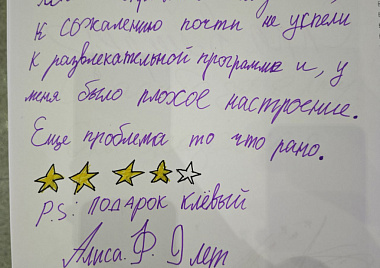 К сожалению почти не успели
к развлекательной программе и, у
меня было плохое настроение.
Еще проблема то что рано.
P.S: подарок клёвый
Алиса. Ф. 9 лет